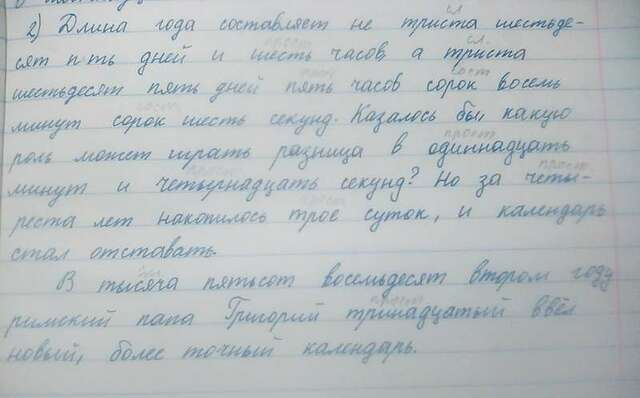 2) Длина года составляет не триста шестьде-
сят пть дней и шесть часов а триста
шестьдесят пять дней пять часов сорок восемь
минут сорок шесть секунд. Казалось бы, какую
роль может играть разница в одиннадцать
минут и четырнадцать секунд? Но за четы-
реста лет накопилось трое суток, и календарь
стал отставать.
В тысяча пятьсот восемьдесят втором году
римский папа Григорий тринадцатый ввёл
новый, более точный календарь.